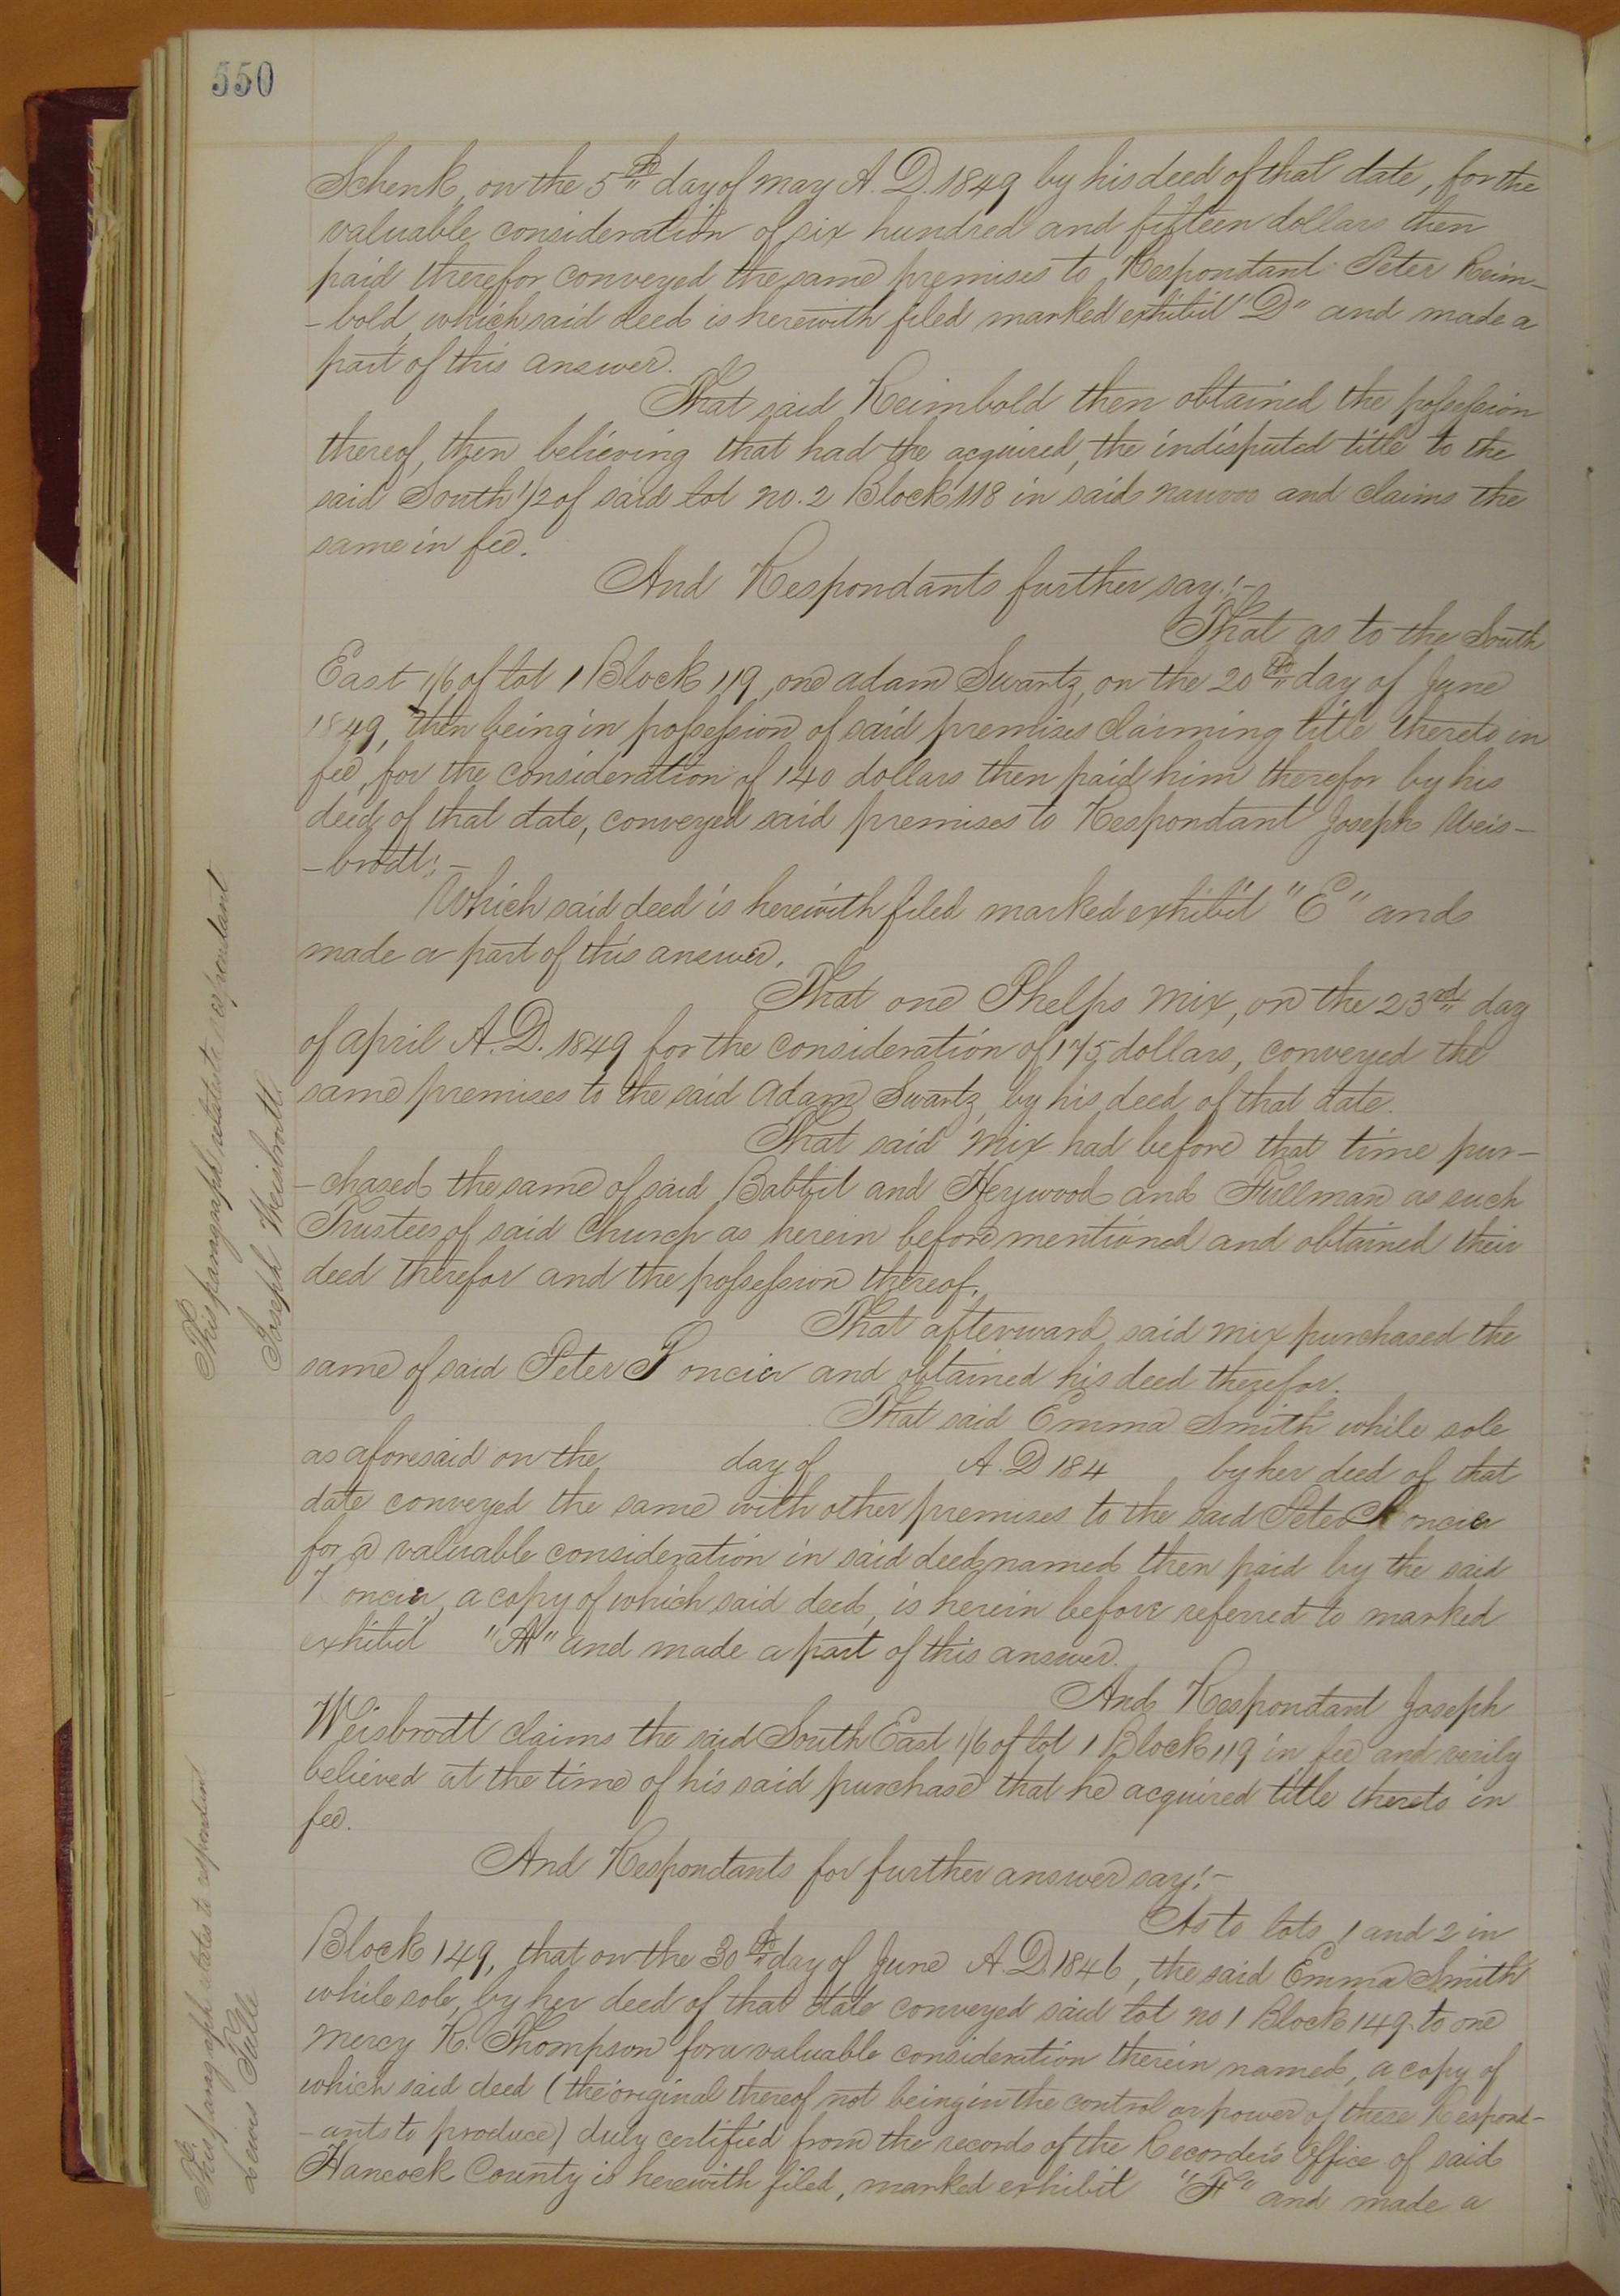 550
Schenk, on the 5th day of may A. D. 1849 by his deed of that date, for the
valuable consideration of six hundred and fifteen dollars then
paid therefor conveyed the same premises to Respondant Peter Reim-
-bold, which said deed is herewith filed marked exhibit "D" and made a
part of this answer.
That said Reimbold then obtained the possession
thereof, then believing that had the acquired, the indisputed title to the
said South 1/2 of said lot no. 2 Block 118 in said nauvoo and claims the
same in fee.
And Respondants further say:-
That as to the South
East 1/6 of lot 1 Block 119, one adam Swartz, on the 20th day of June
1849, then being in possession of said premises claiming title thereto in
fee, for the consideration of 140 dollars then paid him therefor by his
deed of that date, conveyed said premises to Respondant Joseph Weis-
-brodt:-
Which said deed is herewith filed marked exhibit "E" and
made a part of this answer.
That one Phelps mix, on the 23rd day
of april A. D. 1849 for the consideration of 175 dollars, conveyed the
same premises to the said adam Swartz, by his deed of that date.
That said mix had before that time pur-
-chased the same of said Babbit and Heywood and Fullman as such
Trustees of said Church as herein before mentioned and obtained their
deed therefor and the possession thereof.
That afterward said mix purchased the
same of said Peter oncier and obtained his deed therefor.
That said Emma Smith while sole
as aforesaid on the day of A. D 184 by her deed of that
date conveyed the same with other premises to the said Peter oncier
for a valuable consideration in said deed named then paid by the said
oncier, a copy of which said deed, is herein before referred to marked
exhibit "A" and made a part of this answer.
And Respondant Joseph
Weisbrodt claims the said South East 1/6 of lot 1 Block 119 in fee and verily
believed at the time of his said purchase that he acquired title thereto in
fee.
And Respondants for further answer say:-
As to lots 1 and 2 in
Block 149, that on the 30th day of June A. D. 1846, the said Emma Smith
while sole, by her deed of that date conveyed said lot no 1 Block 149 to one
mercy R. Thompson for a valuable consideration therein named, a copy of
which said deed (the original thereof not being in the control or power of these Respond-
-ants to produce) duly certified from the records of the Recorder's Office of said
Hancock County is herewith filed, marked exhibit "F" and made a
This paragraph relates to respondant
Joseph Weisbrodt
This paragraph relates to respondent